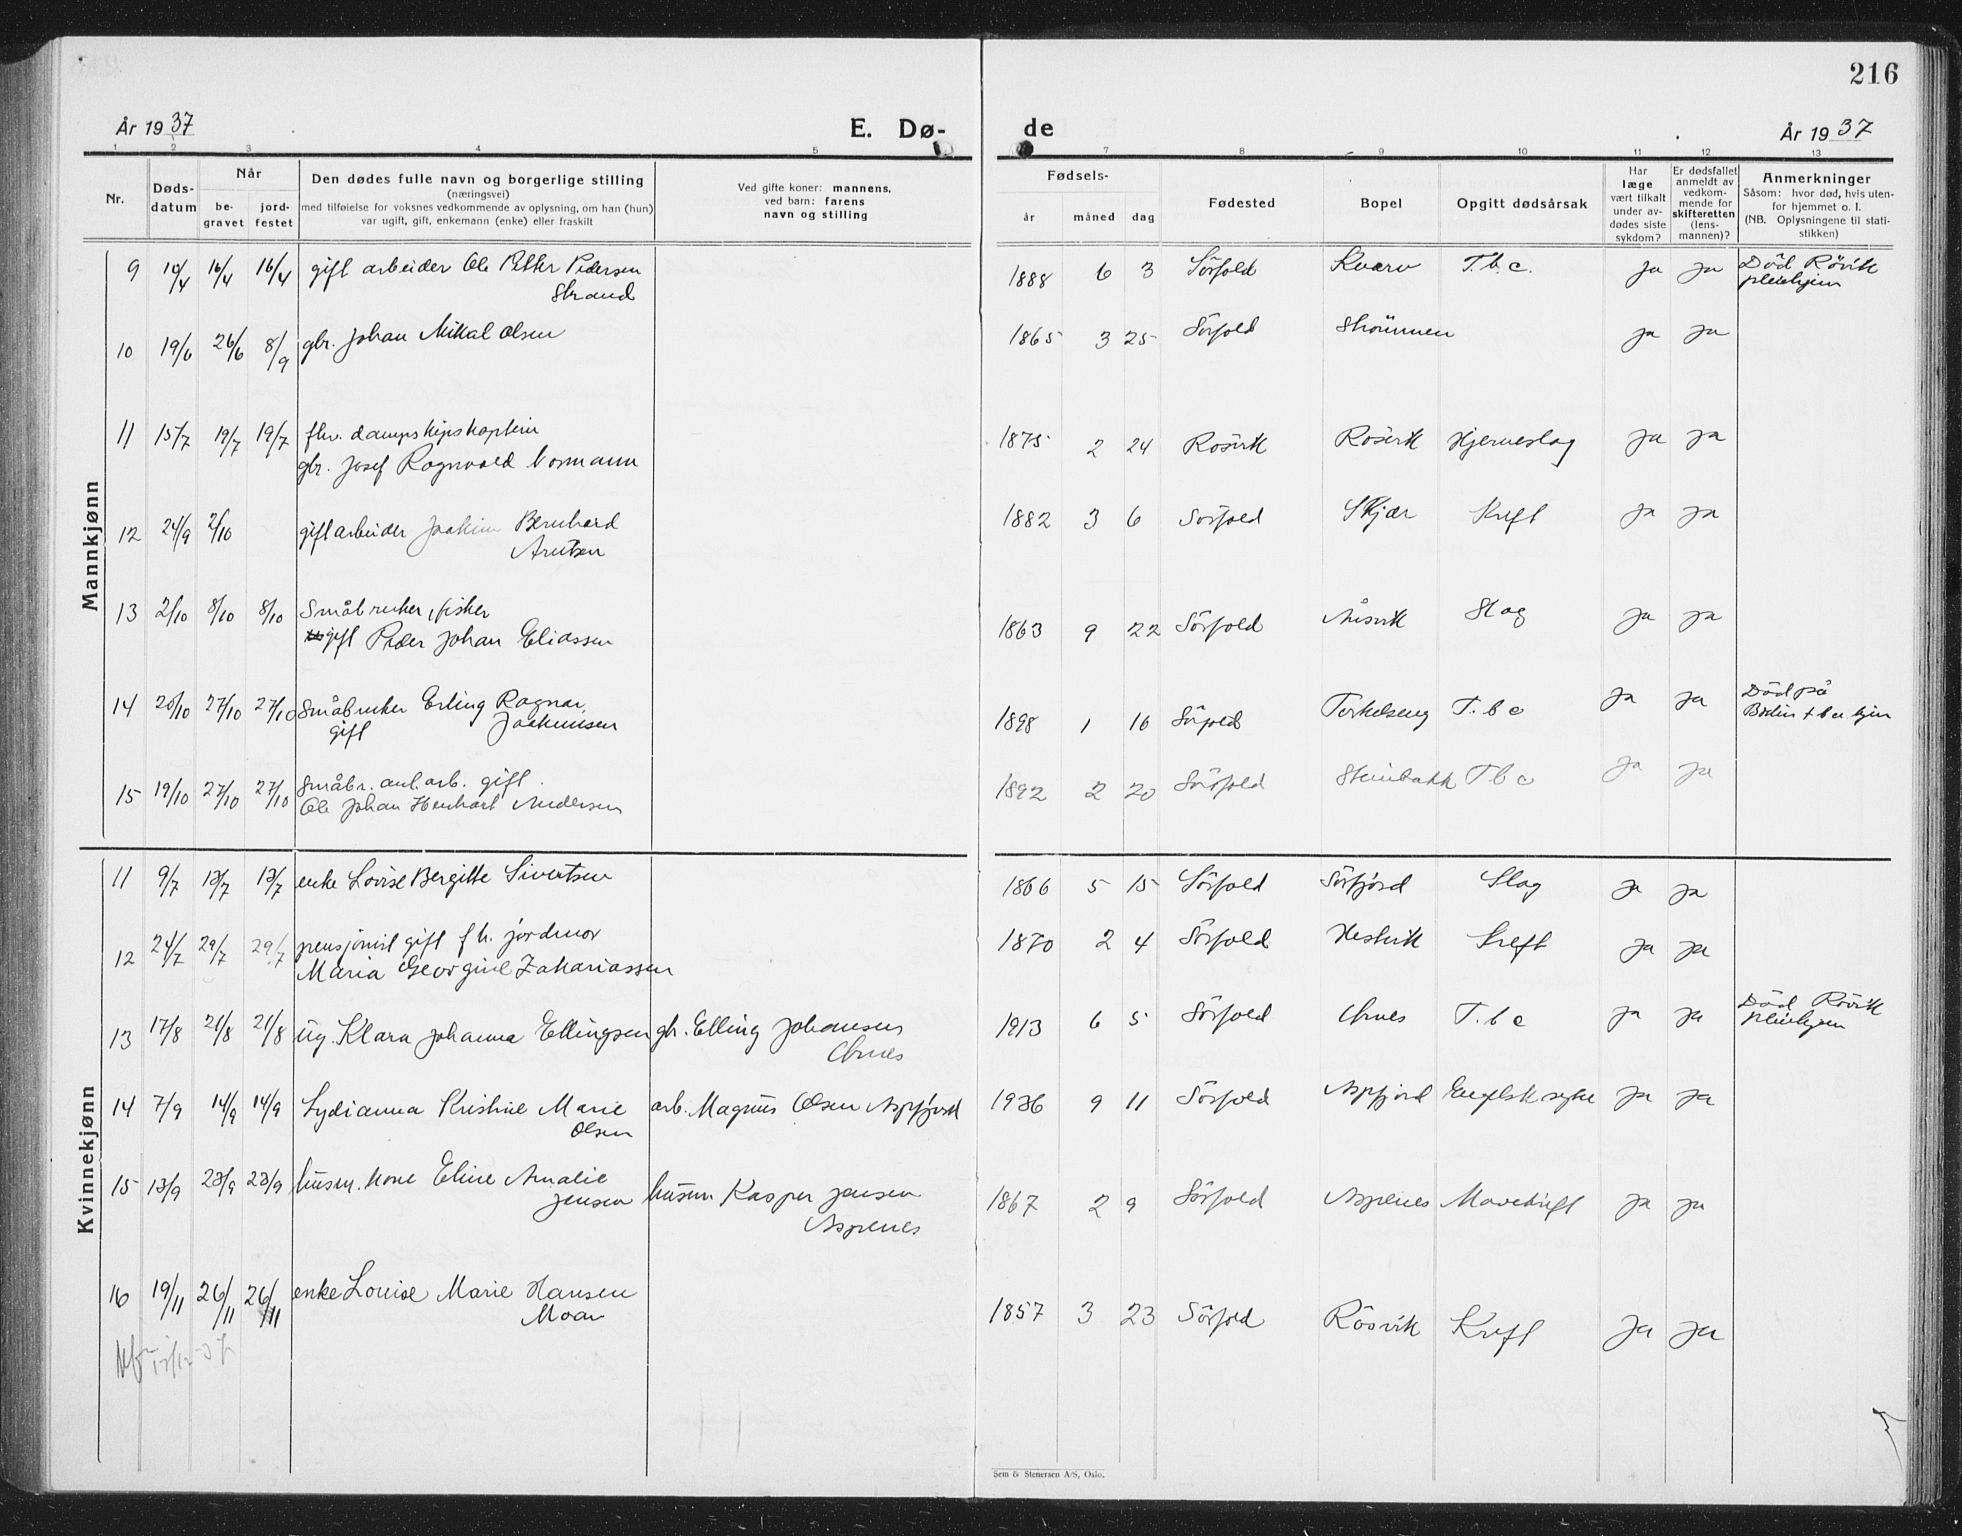 216
År 1937 E. Dø- de År 1937
1 2 3 4 5 7 8 9 10 11 12 13
Nr. Døds-datum Når be-gravet jord-festet
Den dødes fulle navn og borgerlige stilling
(næringsvei)
med tilføielse for voksnes vedkommende av oplysning, om han (hun)
var ugift, gift, enkemann (enke) eller fraskilt
Ved gifte koner: mannens,
ved barn: farens
navn og stilling
Fødsels- år måned dag Fødested Bopel Opgitt dødsårsak
Har læge vært tilkalt under av-dødes siste sykdom?
Er dødsfallet anmeldt av vedkom-mende for skifteretten (lens-mannen)?
Anmerkninger
Såsom: hvor død, hvis uten-
for hjemmet o. l.
(NB. Oplysningene til stati-
stikken)
Mannkjønn
9 10/4 16/4 16/4 gift arbeider Ole Petter Pedersen 1888 6 3 Sörfold Kvarv T.b.c. ja ja Död Rövik
Strand pleiehjem
10 19/6 26/6 8/9 gbr. Johan Mikal Olsen 1865 3 25 Sörfold Straumen ja ja
11 15/7 19/7 19/7 fhv. dampskipskaptein 1875 2 24 Rösvik Rösvik Hjerneslag ja ja
gbr. Josef Ragnvald Normann
12 24/9 2/10 gift arbeider Joakim Bernhard 1882 3 6 Sörfold Skjær Kreft ja ja
Arntsen
13 2/10 8/10 8/10 Småbruker, fisker 1863 9 22 Sörfold Åsvik Slag ja ja
gift Peder Johan Eliassen
14 20/10 27/10 27/10 Småbruker Erling Ragnar 1898 1 16 Sörfold Torkelseng T.b.c ja ja Död på
gift Joakimsen Bodin t.b.c. hjem
15 19/10 27/10 27/10 Småbr. anl.arb. gift. 1892 2 20 Sörfold Steinbakk T b c ja ja
Ole Johan Henhart Andersen
Kvinnekjønn
11 9/7 13/7 13/7 enke Lovise Bergitte Sivertsen 1866 5 15 Sörfold Sörfjord Slag ja ja
12 24/7 29/7 29/7 pensjonist gift f h. jordmor 1870 2 4 Sörfold Hestvik Kreft ja ja
Maria Georgine Zakariassen
13 17/8 21/8 21/8 ug. Klara Johanna Ellingsen gbr. Elling Johansen 1913 6 5 Sörfold Årnes T.b c ja ja Död Rövik
Årnes pleiehjem
14 7/9 14/9 14/9 Lydianna Kristine Marie arb. Magnus Olsen Aspfjord 1936 9 11 Sörfold Aspfjord Engelsk syke ja ja
Olsen
15 13/9 23/9 23/9 husm. kone Eline Amalie husm. Kasper Jensen 1867 2 9 Sörfold Aspenes Mavekreft ja ja
Jensen Aspenes
16 19/11 26/11 26/11 enke Louise Marie Hansen 1857 3 23 Sörfold Rösvik Kreft ja ja
Moan
Sem & Stenersen A/S, Oslo.